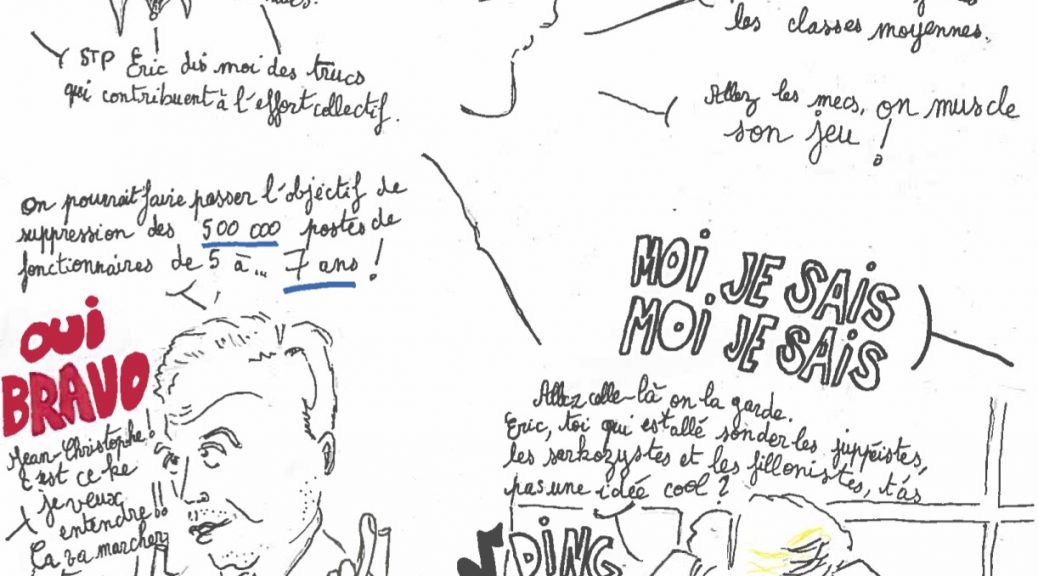 les classes moyennes.
STP Eric dis moi des trucs
qui contribuent à l'effort collectif.
Allez les mecs, on muscle
son jeu !
On pourrait faire passer l'objectif de
suppression des 500 000 postes de
fonctionnaires de 5 à... 7 ans !
MOI JE SAIS
MOI JE SAIS
OUI
BRAVO
Jean-Christophe !
C'est ce ke
je veux
entendre !!
Ça va marcher
Allez celle-là on la garde.
Eric, toi qui est allé sonder les juppéistes,
les sarkozystes et les fillonistes, t'as
pas une idée cool ?
DING